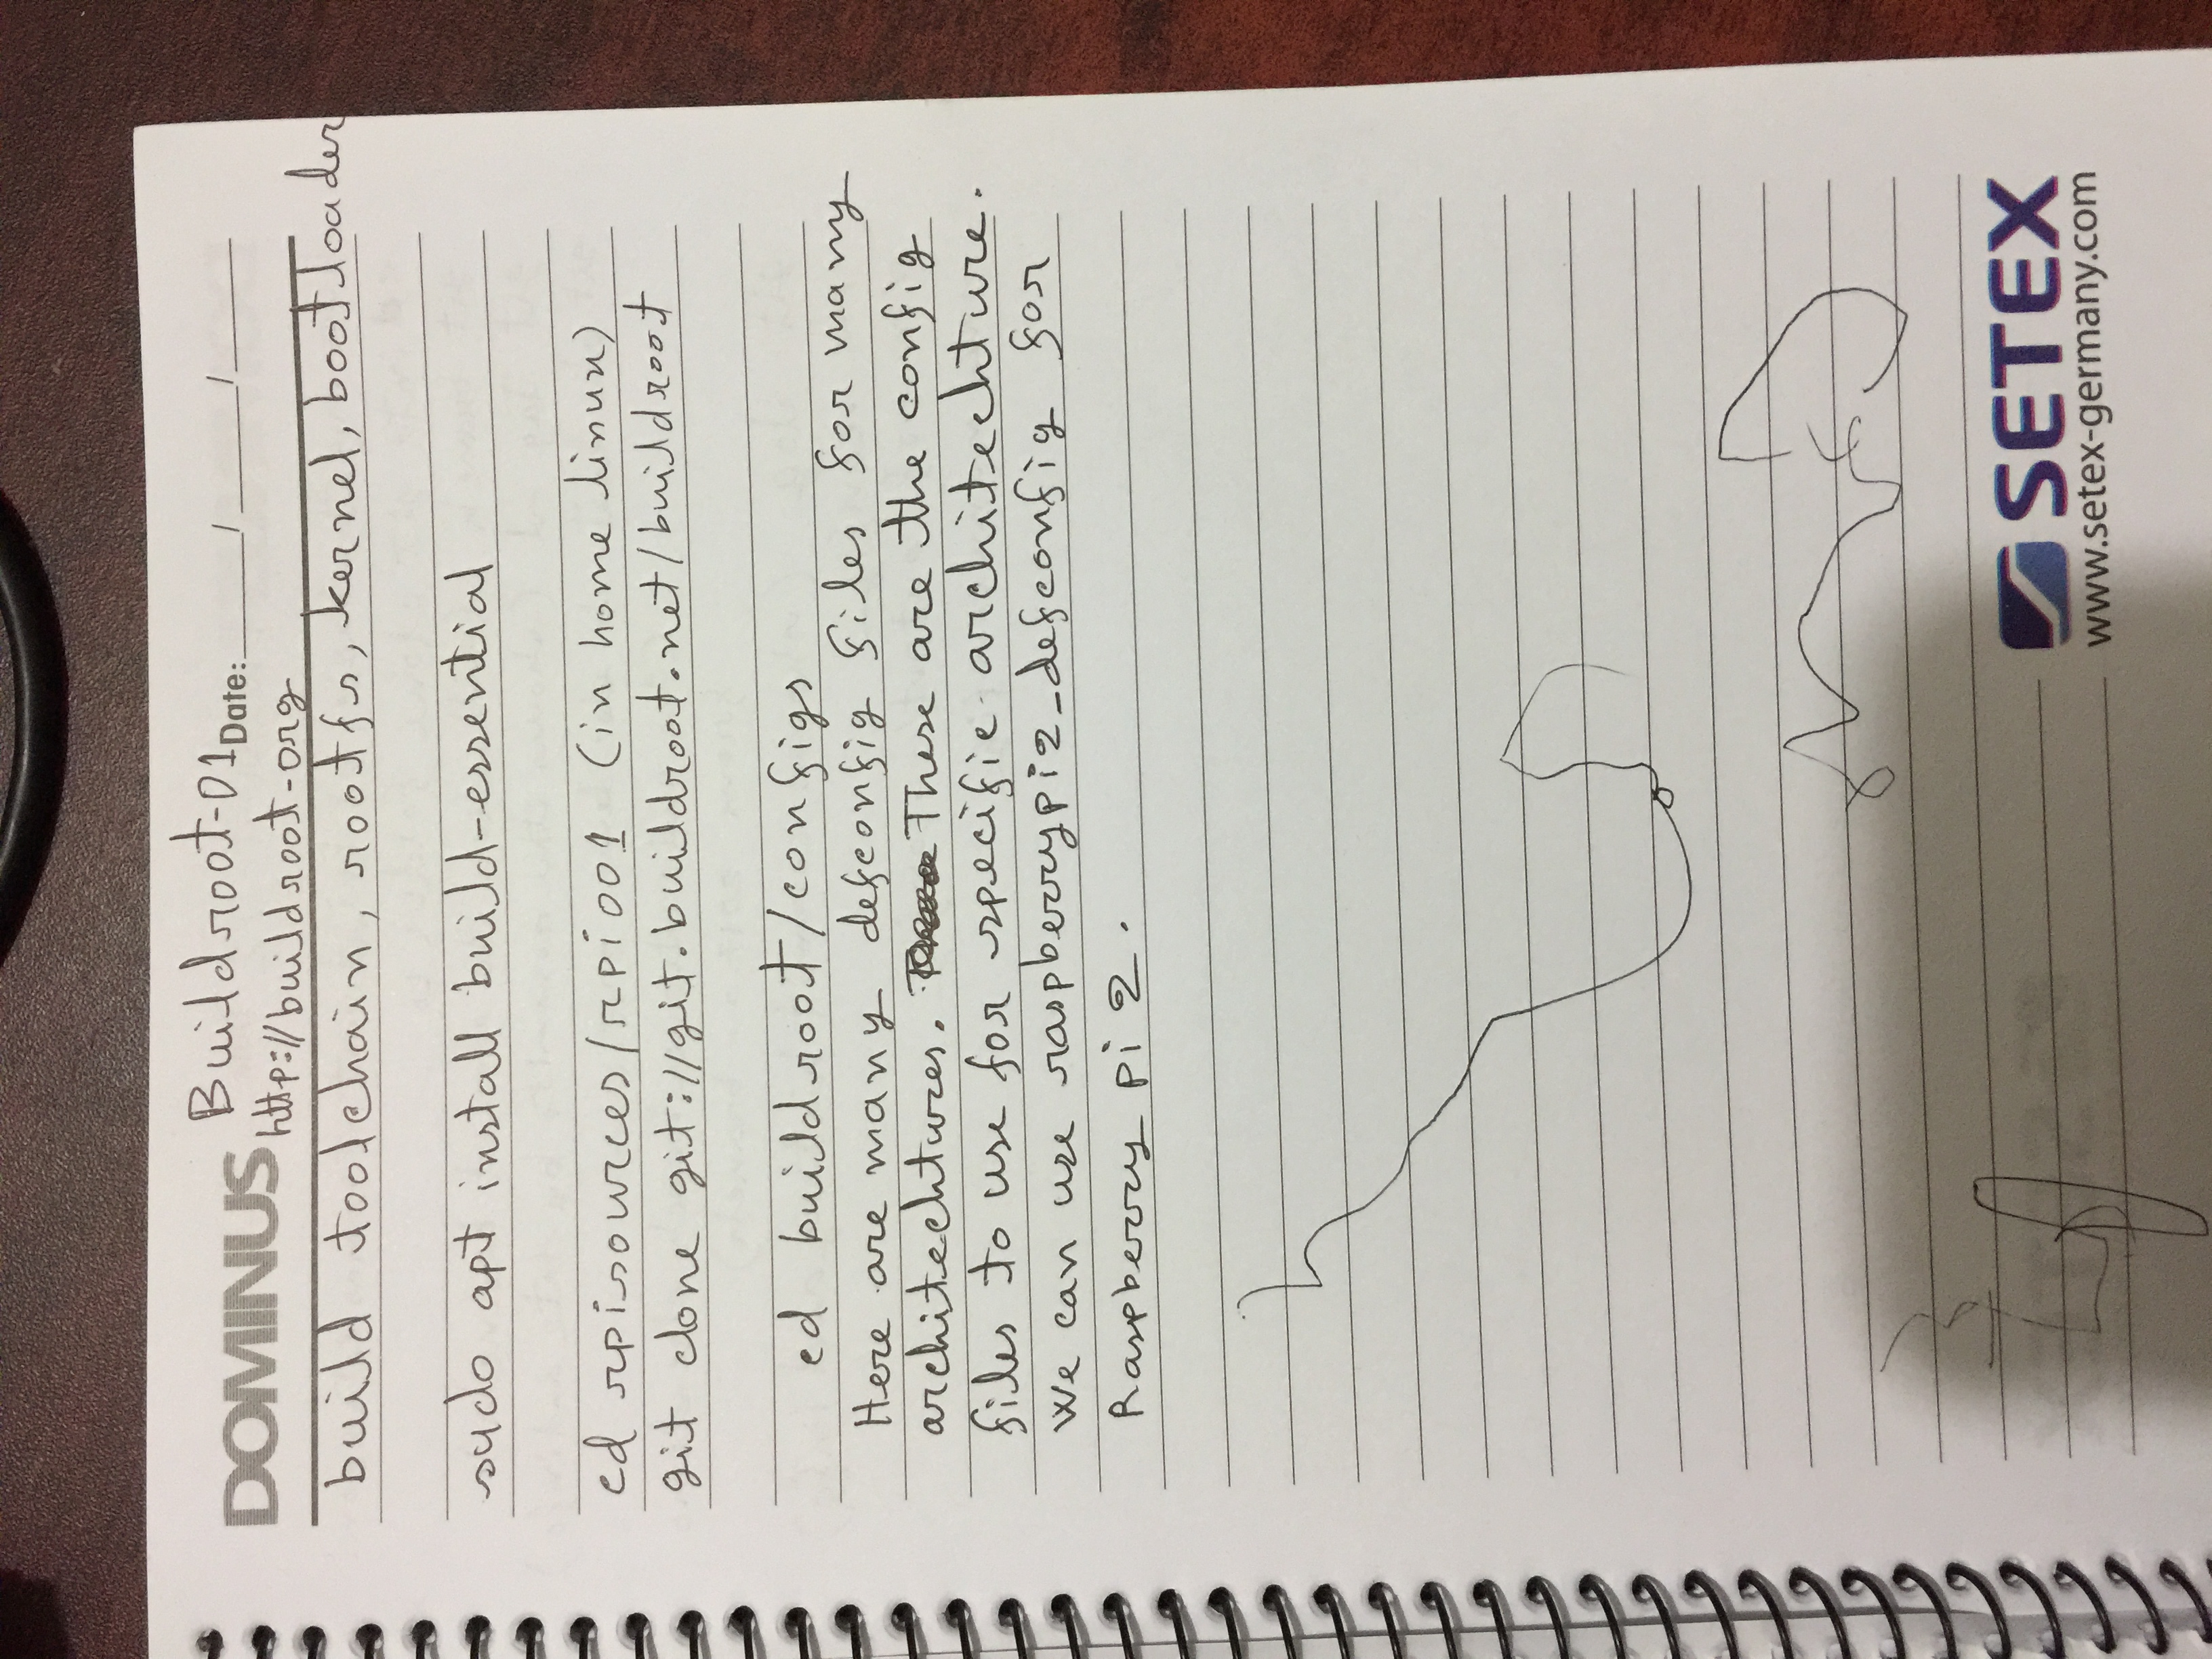 Buildroot-01
DOMINUS Date: / /
http://buildroot-org
build toolchain, rootfs, kernel, bootloader
sudo apt install build-essential
cd rpisources/rpi001 (in home linux)
git clone git://git.buildroot.net/buildroot
cd buildroot/configs
Here are many defconfig files for many
architechtures. These are the config
files to use for specific architechture.
We can use raspberrypi2_defconfig for
Raspberry pi 2.
SETEX
www.setex-germany.com